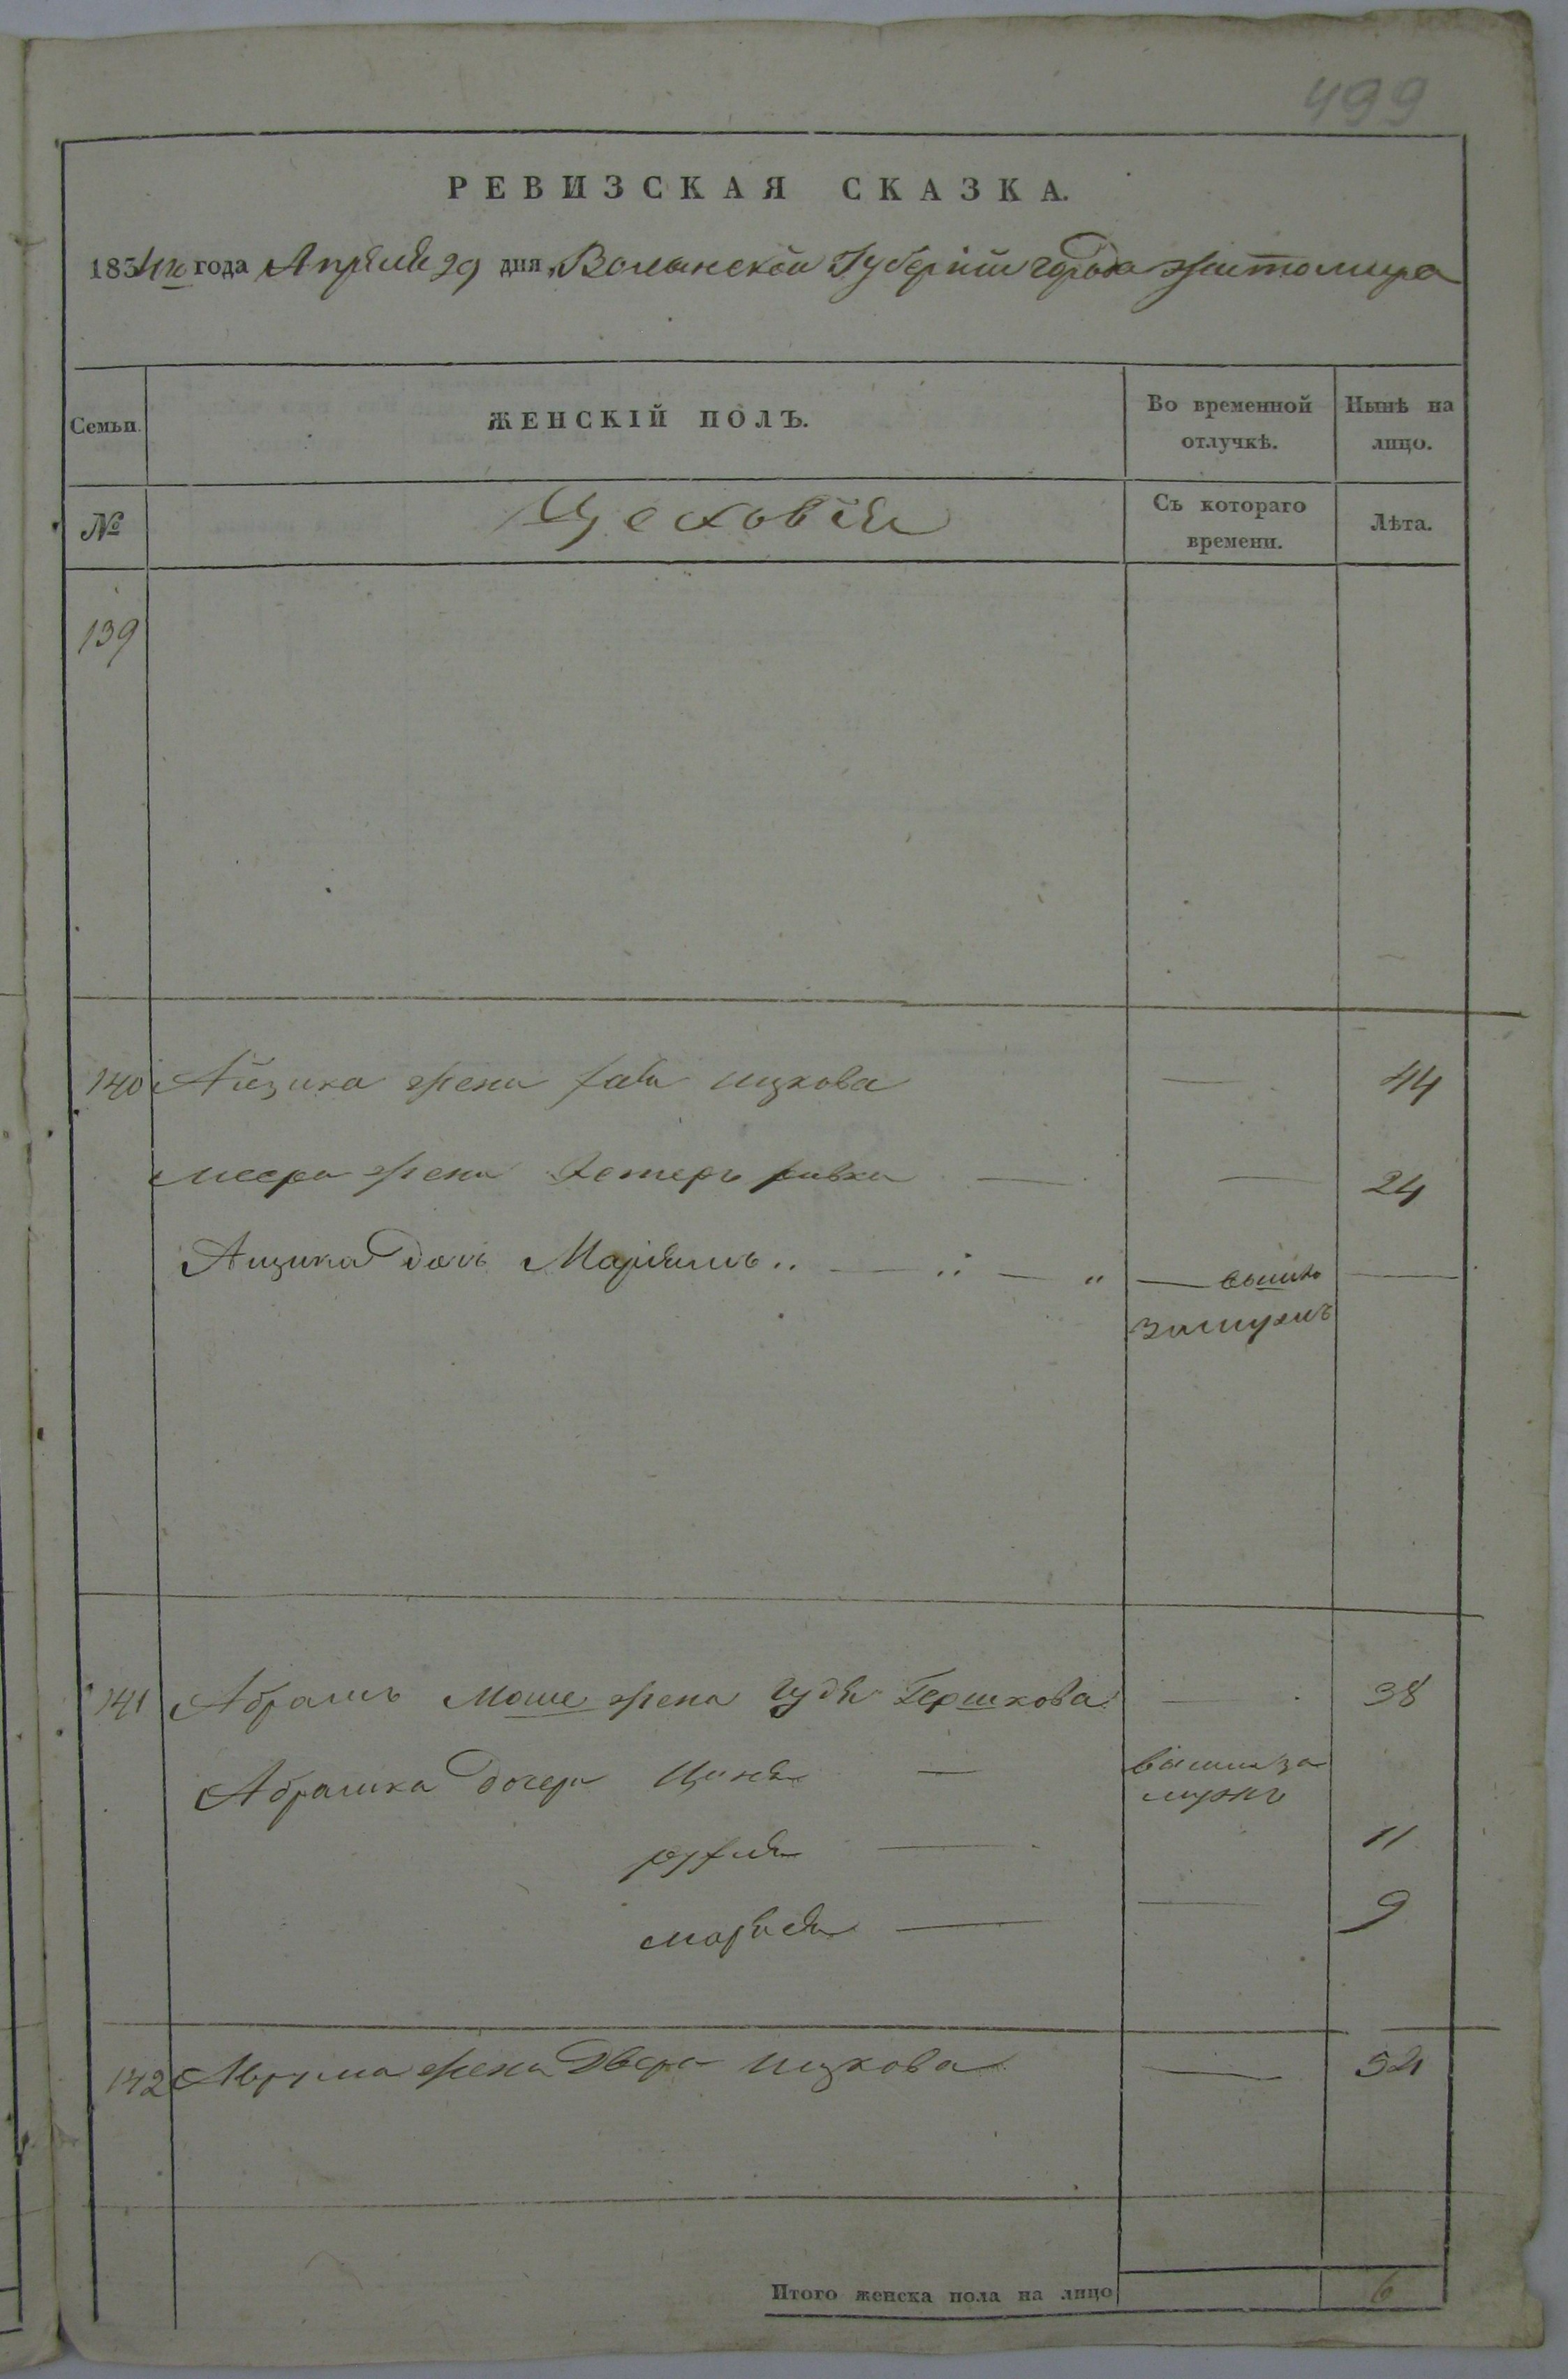 499
РЕВИЗСКАЯ СКАЗКА.
1834го года Апреля 29 дня, Волынской Губернии города Житомира
Семьи. ЖЕНСКІЙ ПОЛЪ. Во временной отлучкѣ. Нынѣ на лицо.
№ Цеховія Съ котораго времени. Лѣта.
139
140 Айзика жена ицкова — 44
жена Эстеръ ривка — — 24
Айзика дочь Маріямъ .. — .. — „ — вышла —
замужъ
141 Абрамъ Моше жена Гершкова — 38
Абрамка дочери Ципя — вышла за
мужъ
— 11
— — 9
142 жена Двера ицкова — 52
Итого женска пола на лицо 6